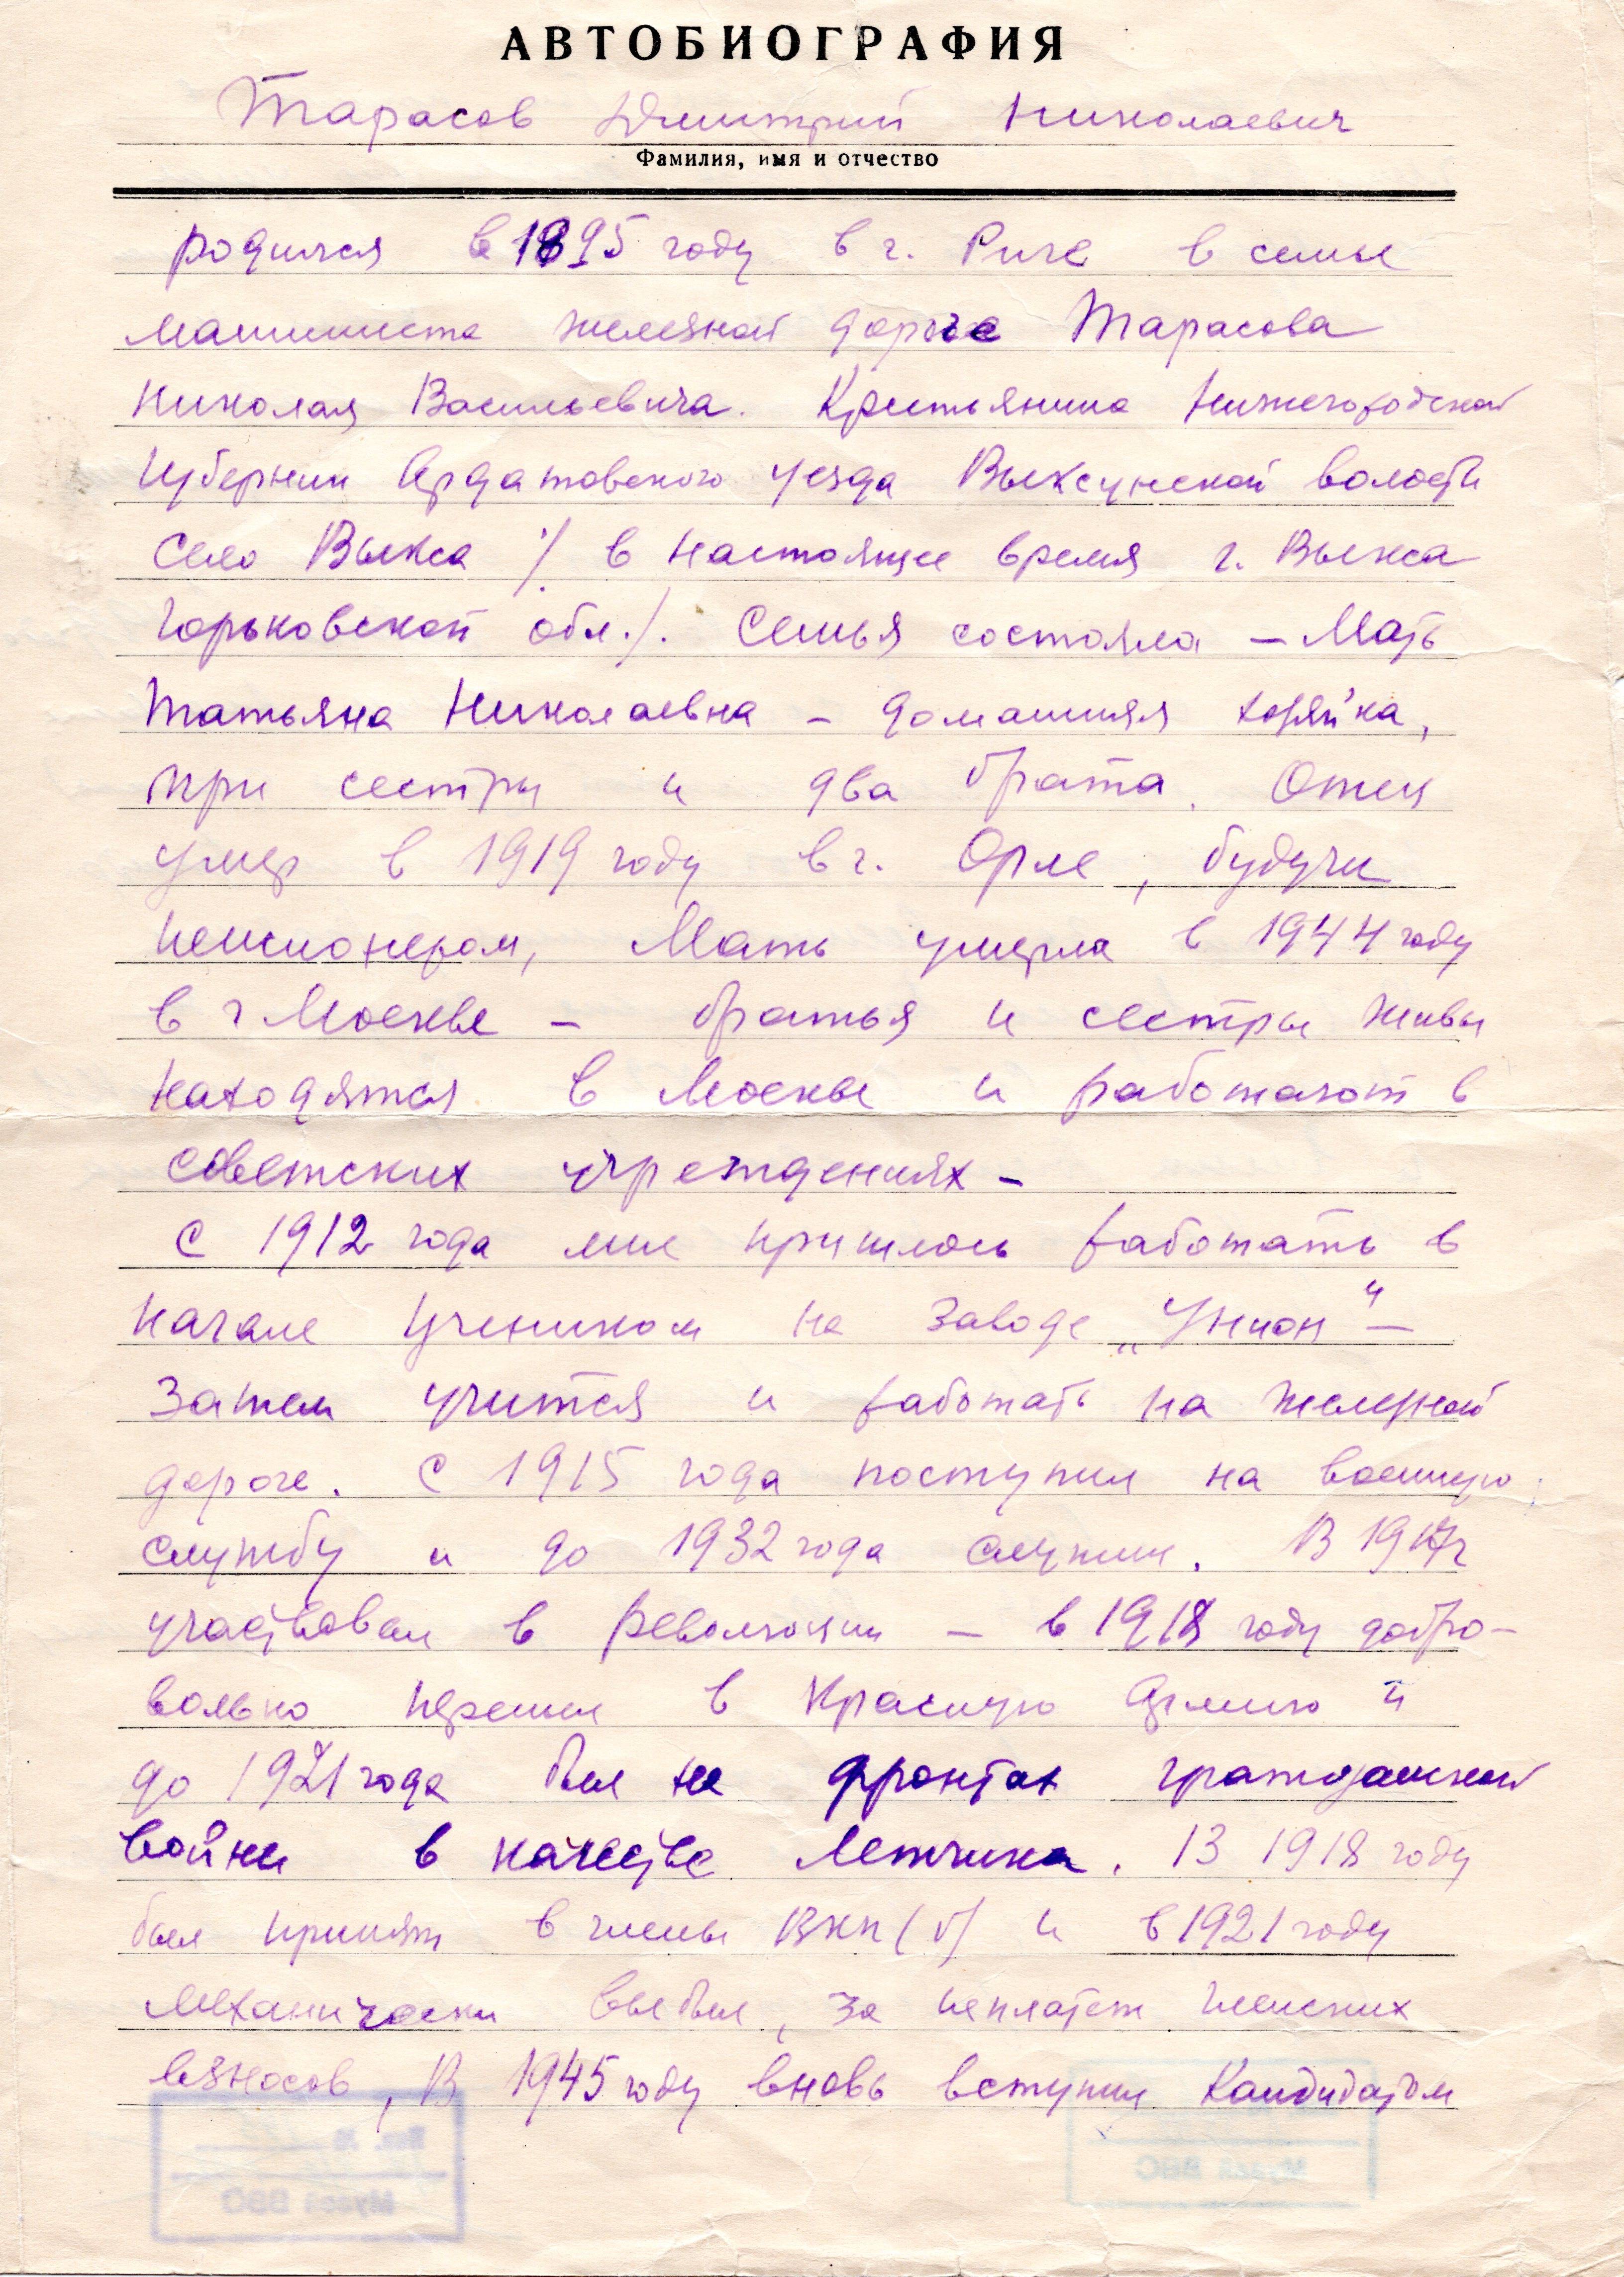 АВТОБИОГРАФИЯ
Тарасов Дмитрий Николаевич
Фамилия, имя и отчество
родился в 1895 году в г. Риге в семье
машиниста железной дороге Тарасова
Николая Васильевича. Крестьянина Нижегородской
Губернии Ардатовского уезда Выксунской волости
Село Выкса /в настоящее время г. Выкса
Горьковской обл./. Семья состояла – Мать
Татьяна Николаевна – домашняя хозяйка,
три сестры и два брата. Отец
умер в 1919 году в г. Орле, будучи
пенсионером, Мать умерла в 1944 году
в г Москве – братья и сестры живы
находятся в Москве и работают в
советских учреждениях –
С 1912 года мне пришлось работать в
начале учеником на заводе „Унион“ –
Затем учится и работать на железной
дороге. С 1915 года поступил на военную
службу и до 1932 года служил. В 1917г
участвовал в революции – в 1918 году добро-
вольно перешел в Красную Армию и
до 1921 года был на фронтах гражданской
войны в качестве Летчика. В 1918 году
был принят в члены ВКП(б) и в 1921 году
механически выбыл, за неплатеж членских
взносов, В 1945 году вновь вступил Кандидатом
Вх. №
Музей ВВС
Музей ВВС